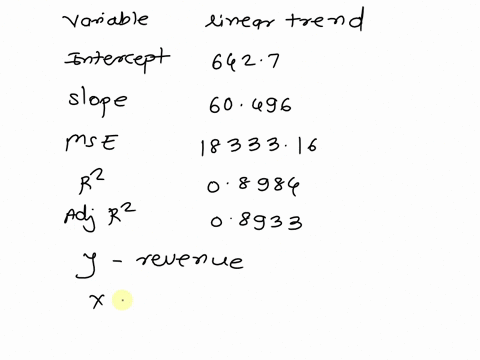 Variable linear trend
Intercept 642.7
Slope 60.496
MSE 18333.16
R² 0.8984
Adj R² 0.8933
y - revenue
x